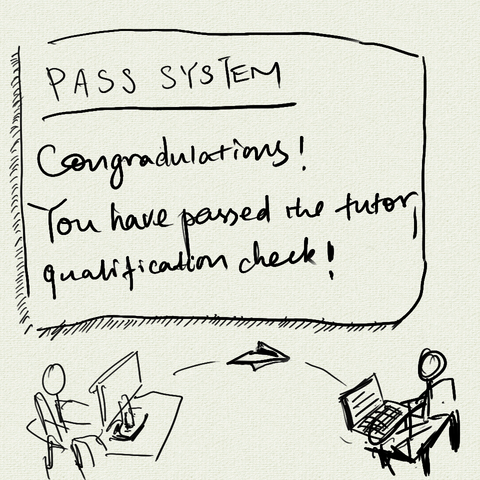 PASS SYSTEM
Congradulations!
You have passed the tutor
qualification check!